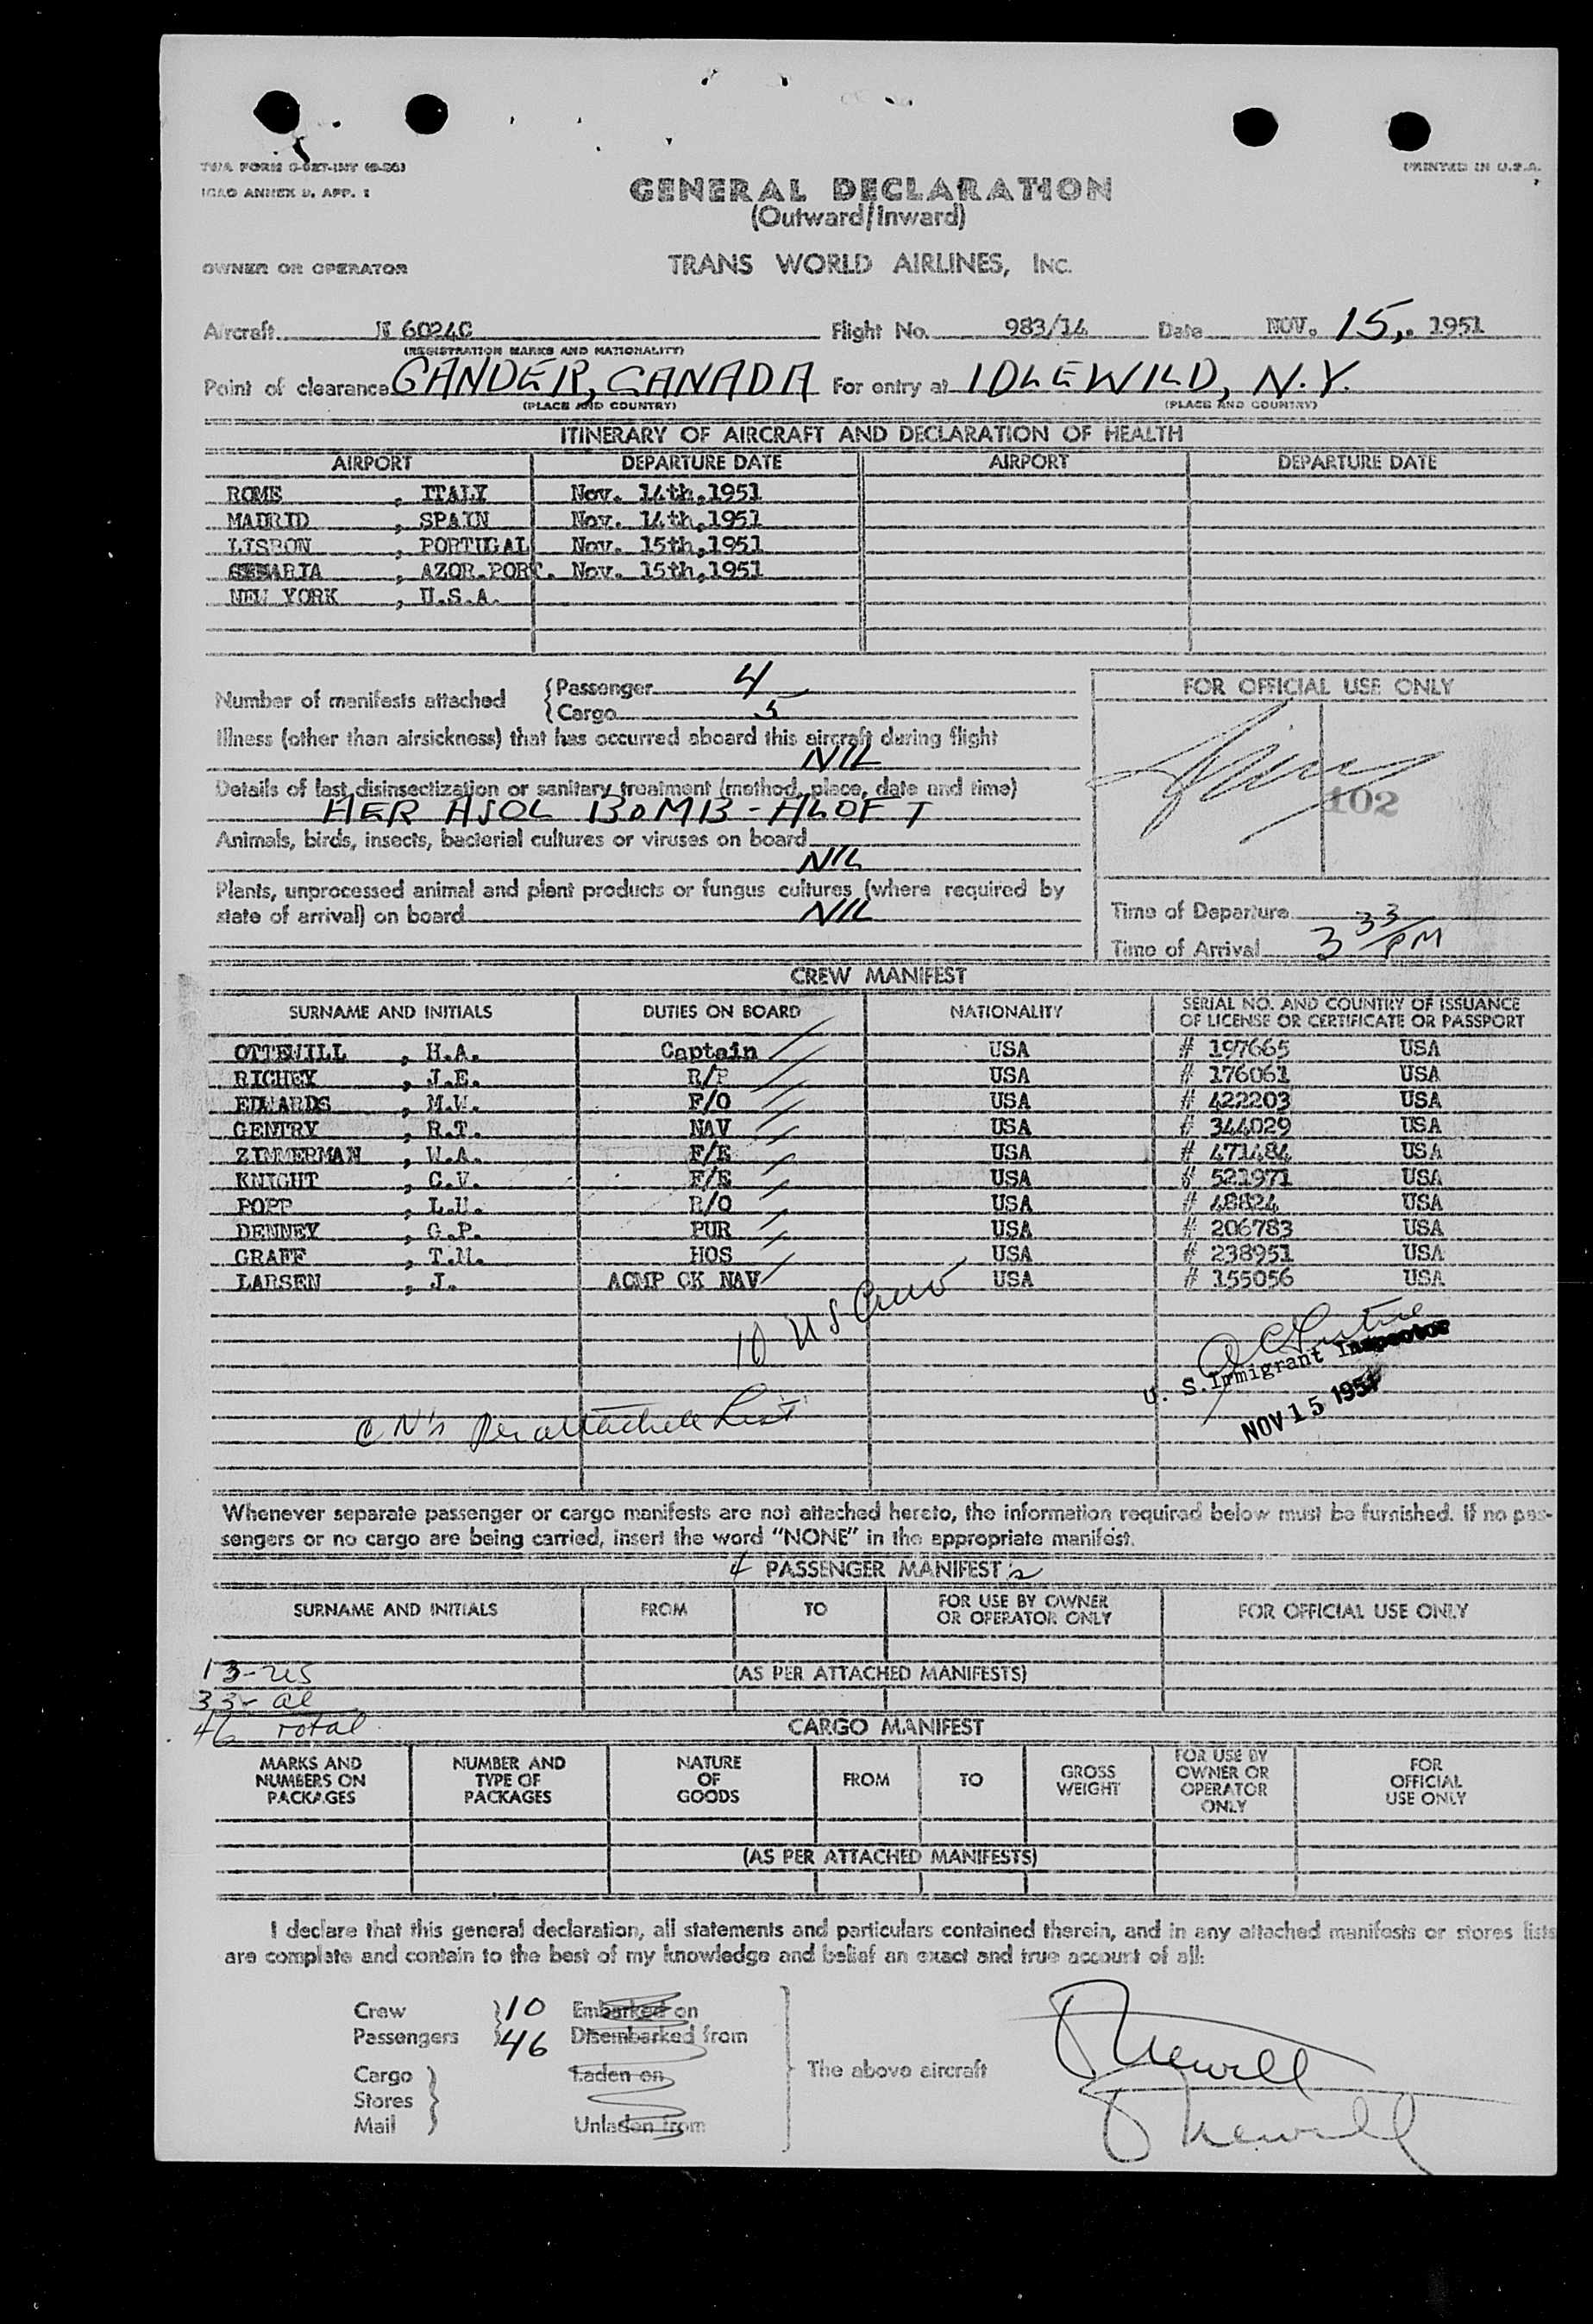 TWA FORM G-027-INT (8-50)
PRINTED IN U.S.A.
ICAO ANNEX 9, APP. 1
GENERAL DECLARATION
(Outward/Inward)
OWNER OR OPERATOR TRANS WORLD AIRLINES, INC.
Aircraft N 6024C Flight No. 983/14 Date NOV. 15, 1951
(REGISTRATION MARKS AND NATIONALITY)
Point of clearance GANDER, CANADA For entry at IDLEWILD, N.Y.
(PLACE AND COUNTRY) (PLACE AND COUNTRY)
ITINERARY OF AIRCRAFT AND DECLARATION OF HEALTH
AIRPORT DEPARTURE DATE AIRPORT DEPARTURE DATE
ROME , ITALY Nov. 14th,1951
MADRID , SPAIN Nov. 14th,1951
LISBON , PORTUGAL Nov. 15th,1951
MARIA , AZOR.PORT. Nov. 15th,1951
NEW YORK , U.S.A.
Number of manifests attached
Passenger 4
Cargo 5
FOR OFFICIAL USE ONLY
Illness (other than airsickness) that has occurred aboard this aircraft during flight
NIL
Details of last disinsectization or sanitary treatment (method, place, date and time)
HER ASOL BOMB - ALOFT
102
Animals, birds, insects, bacterial cultures or viruses on board
NIL
Plants, unprocessed animal and plant products or fungus cultures (where required by
state of arrival) on board NIL
Time of Departure
Time of Arrival 3 33 PM
CREW MANIFEST
SURNAME AND INITIALS DUTIES ON BOARD NATIONALITY SERIAL NO. AND COUNTRY OF ISSUANCE
OF LICENSE OR CERTIFICATE OR PASSPORT
OTTEWILL , H.A. Captain USA # 197665 USA
RICHEY , J.E. R/P USA # 176061 USA
EDWARDS , M.W. F/O USA # 422203 USA
GENTRY , R.T. NAV USA # 344029 USA
ZIMMERMAN , W.A. F/E USA # 471484 USA
KNIGHT , C.V. F/E USA # 521971 USA
POPP , L.H. R/O USA # 48824 USA
DENNEY , G.P. PUR USA # 206783 USA
GRAFF , T.M. HOS USA # 238951 USA
LARSEN , J. ACMP CK NAV USA # 155056 USA
10 US Crew
U. S. Immigrant Inspector
NOV 15 1951
CN's per attached List
Whenever separate passenger or cargo manifests are not attached hereto, the information required below must be furnished. If no pas-
sengers or no cargo are being carried, insert the word "NONE" in the appropriate manifest.
4 PASSENGER MANIFEST s
SURNAME AND INITIALS FROM TO FOR USE BY OWNER
OR OPERATOR ONLY FOR OFFICIAL USE ONLY
13 - US
(AS PER ATTACHED MANIFESTS)
33 - al
46 total
CARGO MANIFEST
MARKS AND
NUMBERS ON
PACKAGES
NUMBER AND
TYPE OF
PACKAGES
NATURE
OF
GOODS
FROM
TO
GROSS
WEIGHT
FOR USE BY
OWNER OR
OPERATOR
ONLY
FOR
OFFICIAL
USE ONLY
(AS PER ATTACHED MANIFESTS)
I declare that this general declaration, all statements and particulars contained therein, and in any attached manifests or stores lists
are complete and contain to the best of my knowledge and belief an exact and true account of all:
Crew 10 Embarked on
Passengers 46 Disembarked from
Cargo Laden on
The above aircraft
Stores
Mail Unladen from